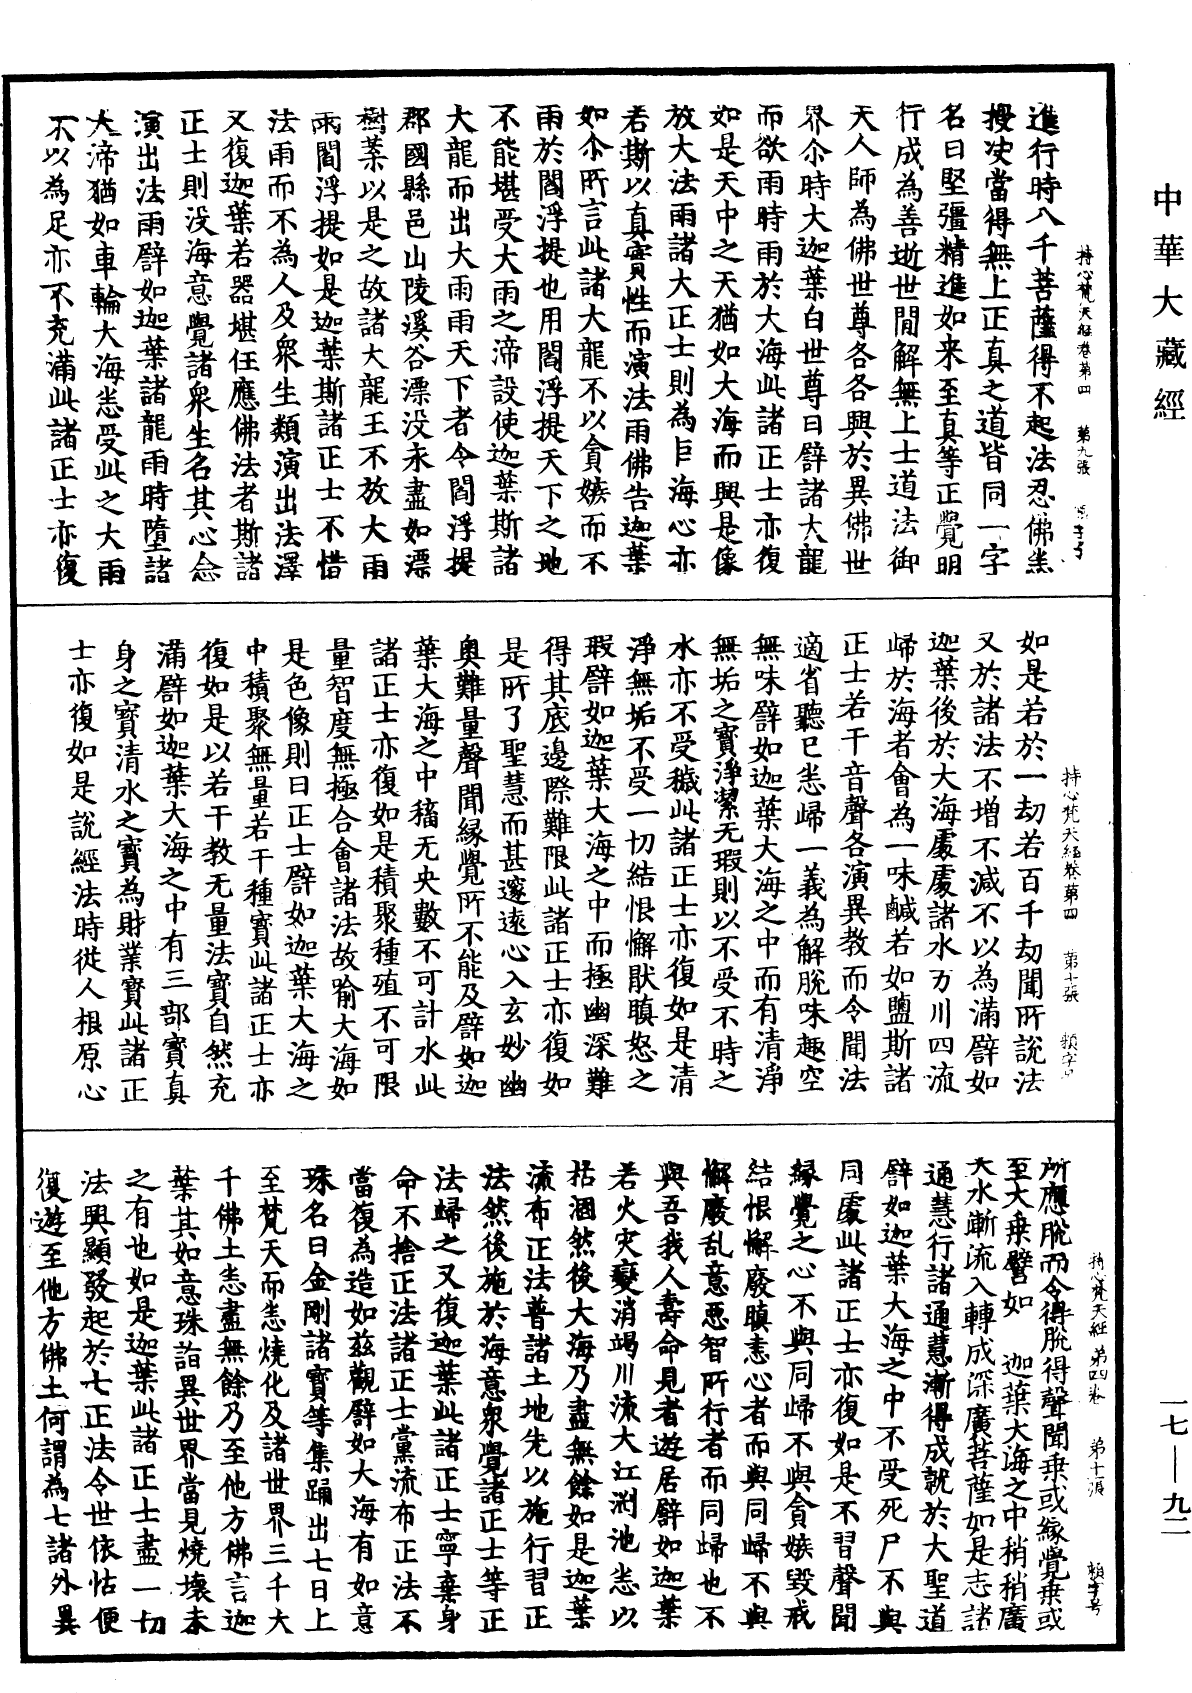 中華大藏經
進行時八千菩薩得不起法忍佛悉
授決當得無上正真之道皆同一字
名曰堅彊精進如来至真等正覺明
行成為善逝世閒解無上士道法御
天人師為佛世尊各各興於異佛世
界尒時大迦葉白世尊曰譬諸大龍
而欲雨時雨於大海此諸正士亦復
如是天中之天猶如大海而興是像
放大法雨諸大正士則為巨海心亦
若斯以真實性而演法雨佛告迦葉
如尒所言此諸大龍不以貪嫉而不
雨於閻浮提也用閻浮提天下之地
不能堪受大雨之渧設使迦葉斯諸
大龍而出大雨雨天下者令閻浮提
郡國縣邑山陵溪谷漂没永盡如漂
樹葉以是之故諸大龍王不放大雨
雨閻浮提如是迦葉斯諸正士不惜
法雨而不為人及衆生類演出法澤
又復迦葉若器堪任應佛法者斯諸
正士則没海意覺諸衆生名其心念
演出法雨譬如迦葉諸龍雨時墮諸
大渧猶如車輪大海悉受此之大雨
不以為足亦不充滿此諸正士亦復
持心梵天經卷第四 第九張
如是若於一劫若百千劫聞所說法
又於諸法不增不減不以為滿譬如
迦葉後於大海處處諸水万川四流
歸於海者會為一味鹹若如鹽斯諸
正士若干音聲各演異教而令聞法
適省聽已悉歸一義為解脫味趣空
無味譬如迦葉大海之中而有清淨
無垢之寶淨潔无瑕則以不受不時之
水亦不受穢此諸正士亦復如是清
淨無垢不受一切結恨懈猒瞋怒之
瑕譬如迦葉大海之中而極幽深難
得其底邊際難限此諸正士亦復如
是所了聖慧而甚邃遠心入玄妙幽
奥難量聲聞緣覺所不能及譬如迦
葉大海之中稸无央數不可計水此
諸正士亦復如是積聚種殖不可限
量智度無極合會諸法故喻大海如
是色像則曰正士譬如迦葉大海之
中積聚無量若干種寶此諸正士亦
復如是以若干教无量法寶自然充
滿譬如迦葉大海之中有三部寶真
身之寶清水之寶為財業寶此諸正
士亦復如是說經法時從人根原心
持心梵天經卷第四 第十張 頼字号
所應脫而令得脫得聲聞乗或緣覺乗或
至大乗譬如 迦葉大海之中稍稍廣
大水漸流入轉成深廣菩薩如是志諸
通慧行諸通慧漸得成就於大聖道
譬如迦葉大海之中不受死尸不與
同處此諸正士亦復如是不習聲聞
緣覺之心不與同歸不與貪嫉毀戒
結恨懈廢瞋恚心者而與同歸不與
懈廢乱意惡智所行者而同歸也不
與吾我人壽命見者遊居譬如迦葉
若火灾變消竭川流大江淵池悉以
枯涸然後大海乃盡無餘如是迦葉
流布正法普諸土地先以施行習正
法然後施於海意衆覺諸正士等正
法歸之又復迦葉此諸正士寧棄身
命不捨正法諸正士黨流布正法不
當復為造如茲觀譬如大海有如意
珠名曰金剛諸寶等集踊出七日上
至梵天而悉燒化及諸世界三千大
千佛土悉盡無餘乃至他方佛言迦
葉其如意珠詣異世界當見燒壞未
之有也如是迦葉此諸正士盡一切
法興顯發起於七正法令世依怙便
復遊至他方佛土何謂為七諸外異
持心梵天經第四卷 第十張 頼字号
一七—九二